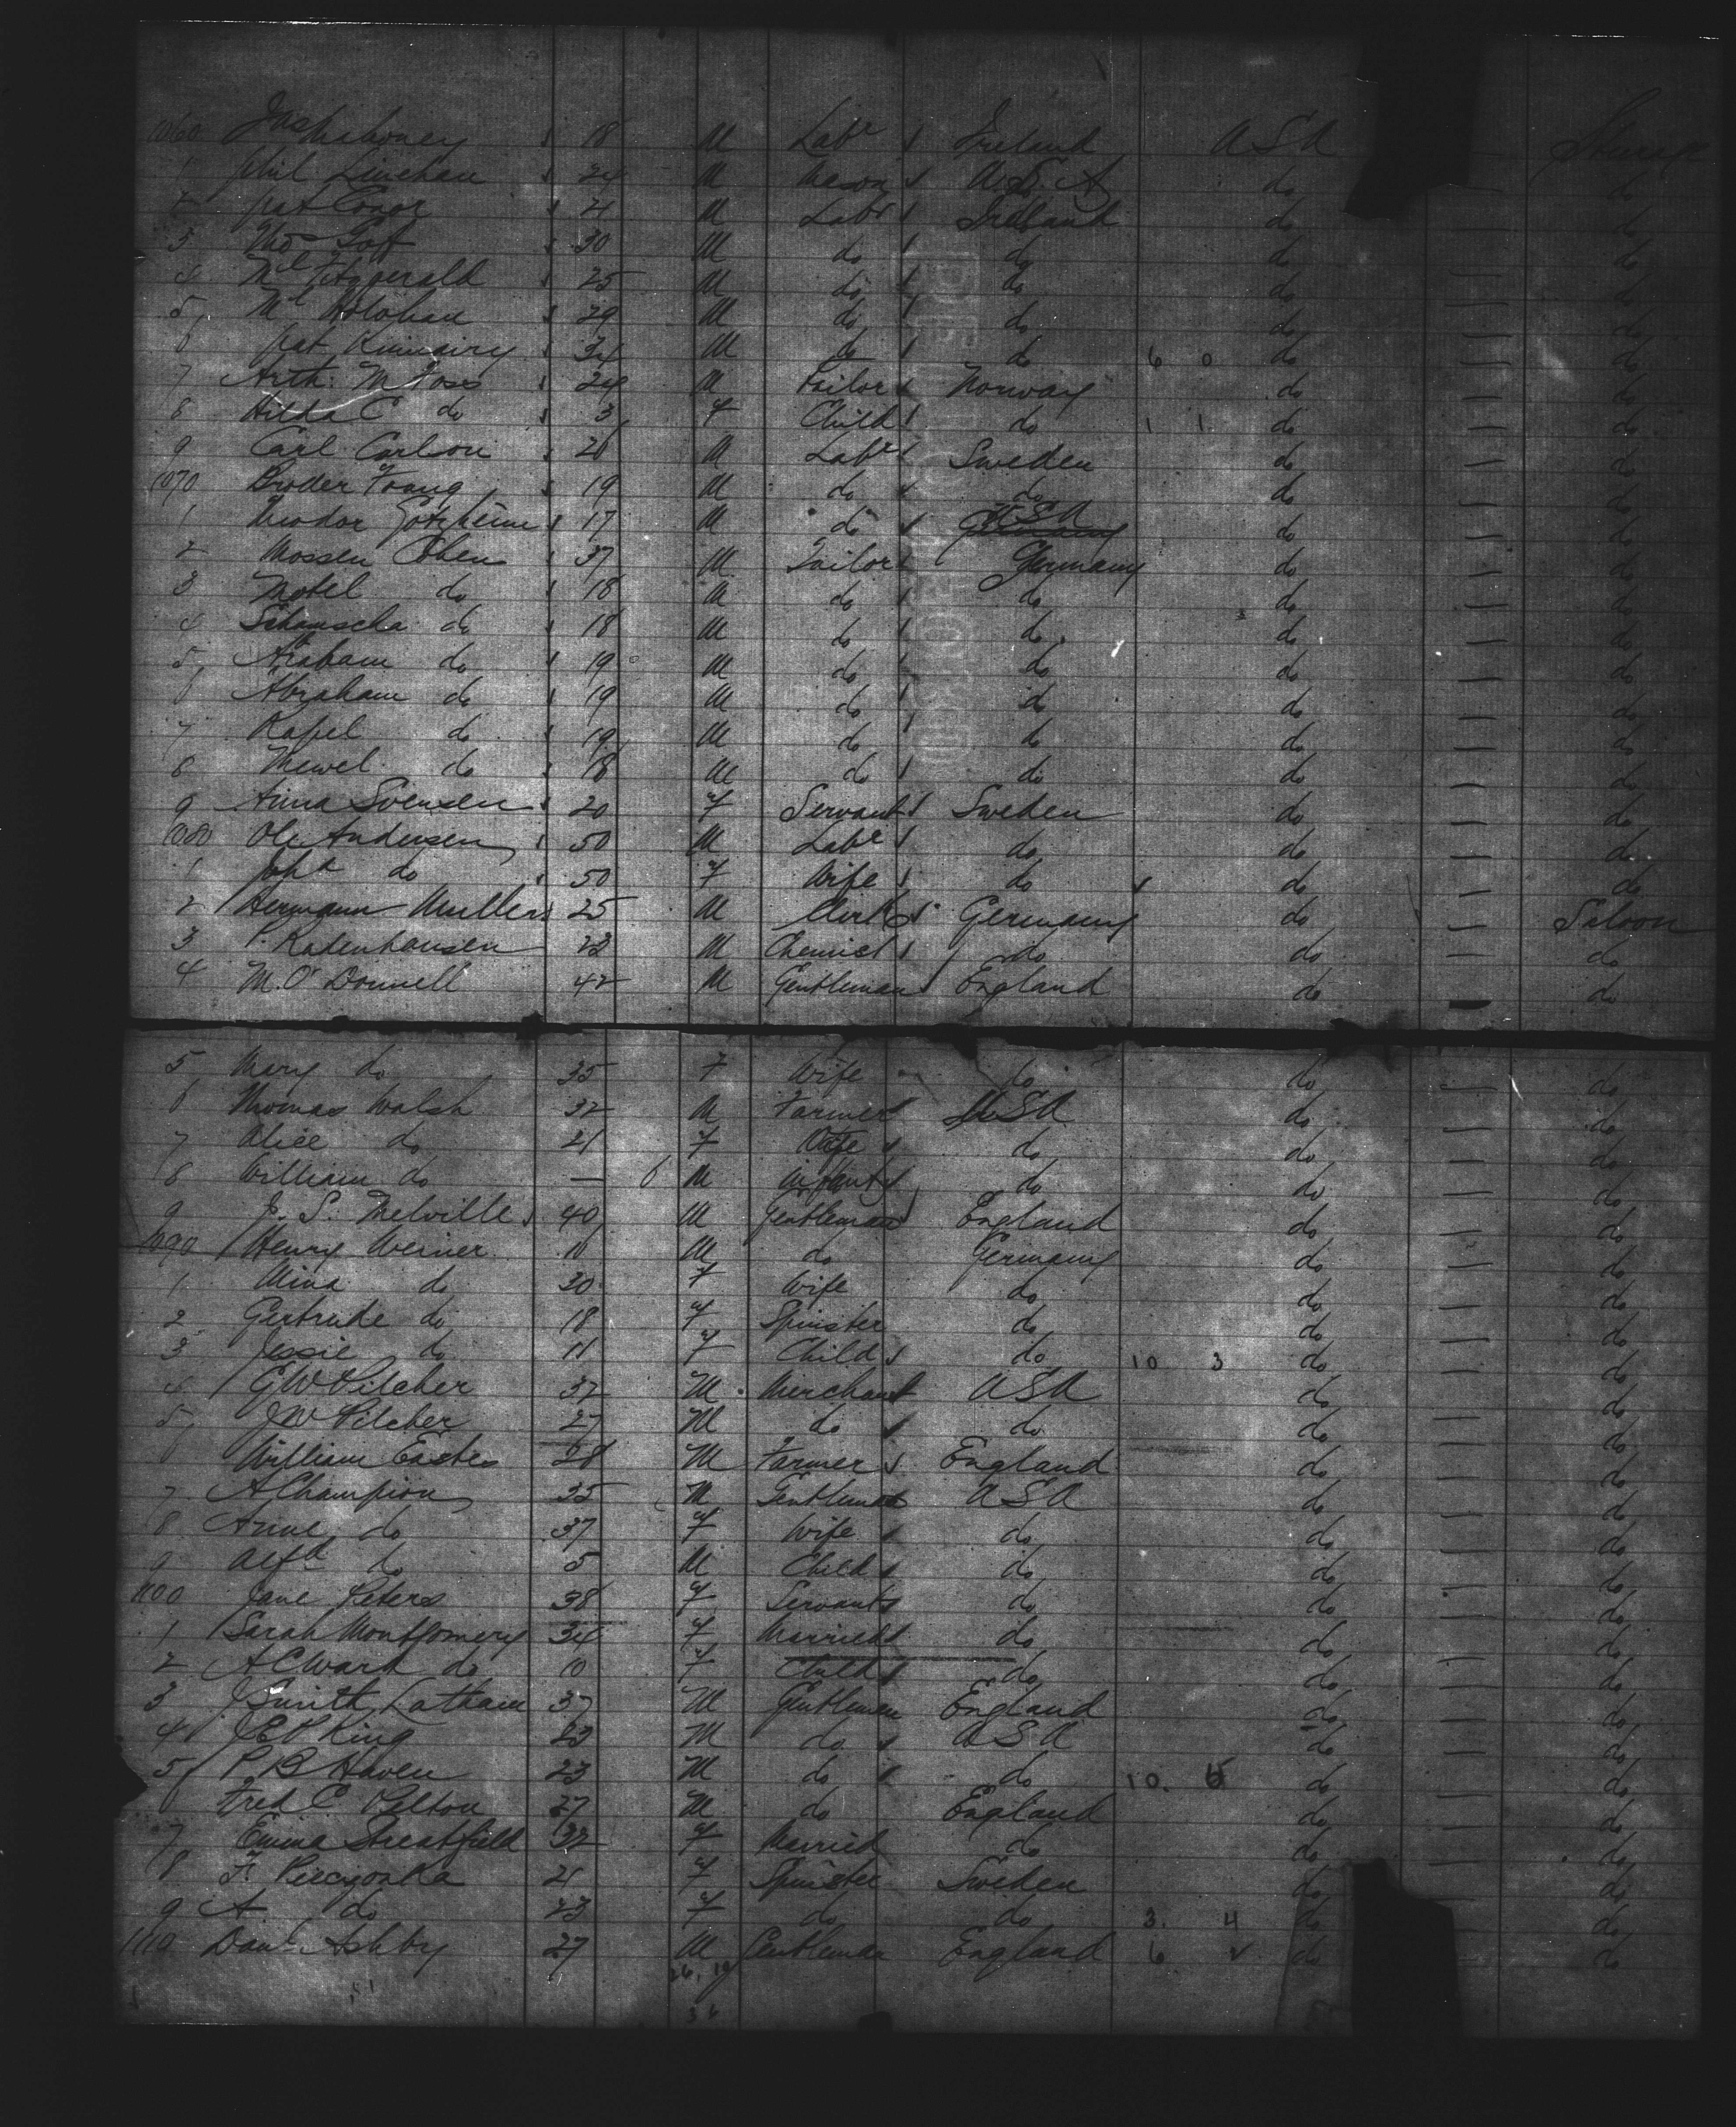 1060 Jas Mahoney 18 M Labr Ireland USA Steerage
1 Phil Linehan 24 M Mason U.S.A do do
2 Pat Conor 21 M Labr Ireland do do
3 Thos Goff 30 M do do do do
4 Ml Fitzgerald 25 M do do do do
5 Ml Holohan 29 M do do do do
6 Pat 34 M do do 6 0 do do
7 Arth. M Foss 24 M Tailor Norway do do
8 Hilda C do 3 F Child do 1 1 do do
9 Carl Carlson 20 M Labr Sweden do do
1070 Broder 19 M do do do do
1 Theodor 17 M do USA do do
2 Mossen Cohen 37 M Tailor Germany do do
3 Motel do 18 M do do do do
4 Schauscha do 18 M do do do do
5 Araham do 19 M do do do do
6 Abraham do 19 M do do do do
7 Rafel do 19 M do do do do
8 Mewel do 18 M do do do do
9 Anna Svensen 20 F Servant Sweden do do
1080 Ole Andersen 50 M Labr do do do
1 Joha do 50 F Wife do do do
2 Hermann Muller 25 M Clerk Germany do Saloon
3 P. Radenhausen 23 M Chemist do do do
4 M. O'Donnell 42 M Gentleman England do do
5 Mary do 35 F Wife do do do
6 Thomas Walsh 32 M Farmer USA do do
7 Alice do 21 F Wife do do do
8 William do — 6 M Infant do do do
9 J. S. Melville 40 M Gentleman England do do
1090 Henry Werner M do Germany do do
1 Mina do 30 F Wife do do do
2 Gertrude do 18 F Spinster do do do
3 Jessie do 11 F Child do 10 3 do do
4 G W Pilcher 32 M Merchant USA do do
5 J W Pilcher 27 M do do do do
6 William Eastes 28 M Farmer England do do
7 A Champion 35 M Gentleman USA do do
8 Anne do 37 F Wife do do do
9 Alfd do 5 M Child do do do
1100 Jane Peters 38 F Servant do do do
1 Sarah Montgomery 34 F Married do do do
2 A C Ward do 10 F Child do do do
3 J Smith Latham 37 M Gentleman England do do
4 J E P King 23 M do USA do do
5 P B Haven 23 M do do 10. do do
6 Fred C Pelton 27 M do England do do
7 Emma Streatfield 32 F Married do do do
8 F. 21 F Spinster Sweden do do
9 A do 23 F do do 3. 4 do do
1110 Danl Ashby 27 M Gentleman England 6 do do